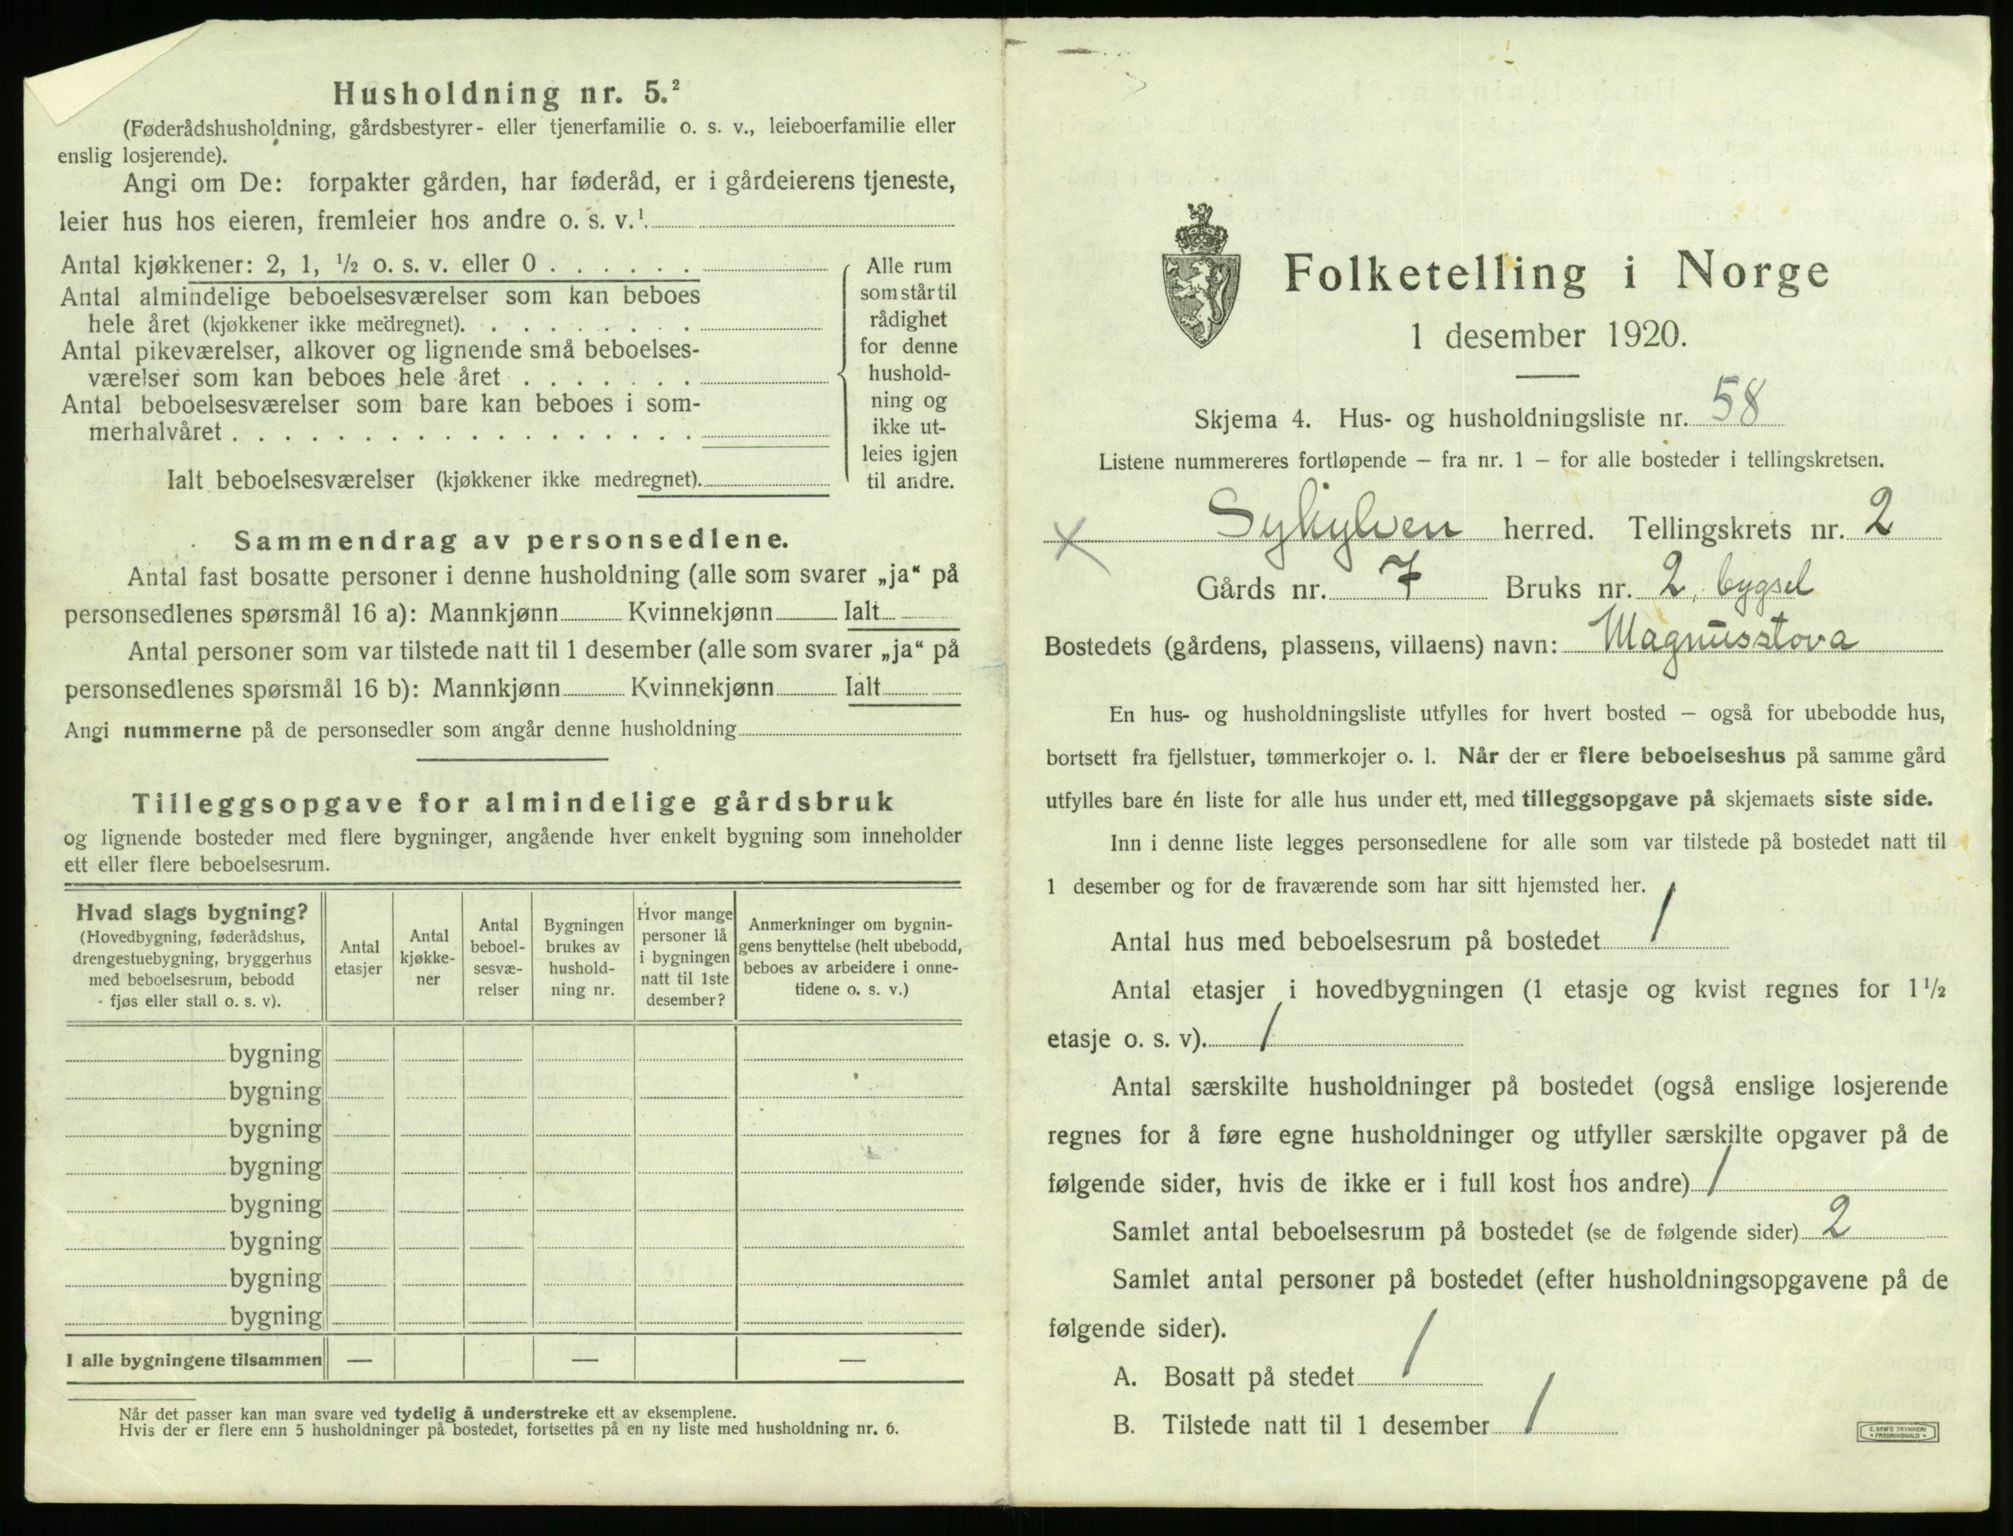 Husholdning nr. 5.²
(Føderådshusholdning, gårdsbestyrer- eller tjenerfamilie o. s. v., leieboerfamilie eller
enslig losjerende).
Angi om De: forpakter gården, har føderåd, er i gårdeierens tjeneste,
leier hus hos eieren, fremleier hos andre o. s. v.¹
Antal kjøkkener: 2, 1, ½ o. s. v. eller 0 . . . . . .
Antal almindelige beboelsesværelser som kan beboes
hele året (kjøkkener ikke medregnet). . . . . . . . .
Antal pikeværelser, alkover og lignende små beboelses-
værelser som kan beboes hele året . . . . . . .
Antal beboelsesværelser som bare kan beboes i som-
merhalvåret . . . . . . . . . . . . . . . . . .
Ialt beboelsesværelser (kjøkkener ikke medregnet).
Alle rum
som står til
rådighet
for denne
hushold-
ning og
ikke ut-
leies igjen
til andre.
Sammendrag av personsedlene.
Antal fast bosatte personer i denne husholdning (alle som svarer „ja“ på
personsedlenes spørsmål 16 a): Mannkjønn Kvinnekjønn Ialt
Antal personer som var tilstede natt til 1 desember (alle som svarer „ja“ på
personsedlenes spørsmål 16 b): Mannkjønn Kvinnekjønn Ialt
Angi nummerne på de personsedler som angår denne husholdning
Tilleggsopgave for almindelige gårdsbruk
og lignende bosteder med flere bygninger, angående hver enkelt bygning som inneholder
ett eller flere beboelsesrum.
Hvad slags bygning?
(Hovedbygning, føderådshus,
drengestuebygning, bryggerhus
med beboelsesrum, bebodd
fjøs eller stall o. s. v).
Antal
etasjer
Antal
kjøkke-
ner
Antal
beboel-
sesvæ-
relser
Bygningen
brukes av
hushold-
ning nr.
Hvor mange
personer lå
i bygningen
natt til 1ste
desember?
Anmerkninger om bygnin-
gens benyttelse (helt ubebodd,
beboes av arbeidere i onne-
tidene o. s. v.)
bygning
bygning
bygning
bygning
bygning
bygning
bygning
bygning
I alle bygningene tilsammen — — —
Når det passer kan man svare ved tydelig å understreke ett av eksemplene.
Hvis der er flere enn 5 husholdninger på bostedet, fortsettes på en ny liste med husholdning nr. 6.
Folketelling i Norge
1 desember 1920.
Skjema 4. Hus- og husholdningsliste nr. 58
Listene nummereres fortløpende – fra nr. 1 – for alle bosteder i tellingskretsen.
Sykylven herred. Tellingskrets nr. 2
Gårds nr. 7 Bruks nr. 2, bygsel
Bostedets (gårdens, plassens, villaens) navn: Magnusstova
En hus- og husholdningsliste utfylles for hvert bosted – også for ubebodde hus,
bortsett fra fjellstuer, tømmerkojer o. l. Når der er flere beboelseshus på samme gård
utfylles bare én liste for alle hus under ett, med tilleggsopgave på skjemaets siste side.
Inn i denne liste legges personsedlene for alle som var tilstede på bostedet natt til
1 desember og for de fraværende som har sitt hjemsted her.
Antal hus med beboelsesrum på bostedet 1
Antal etasjer i hovedbygningen (1 etasje og kvist regnes for 1½
etasje o. s. v). 1
Antal særskilte husholdninger på bostedet (også enslige losjerende
regnes for å føre egne husholdninger og utfyller særskilte opgaver på de
følgende sider, hvis de ikke er i full kost hos andre) 1
Samlet antal beboelsesrum på bostedet (se de følgende sider) 2
Samlet antal personer på bostedet (efter husholdningsopgavene på de
følgende sider).
A. Bosatt på stedet 1
B. Tilstede natt til 1 desember 1
E. SEM'S TRYKKERI
FREDRIKSHALD